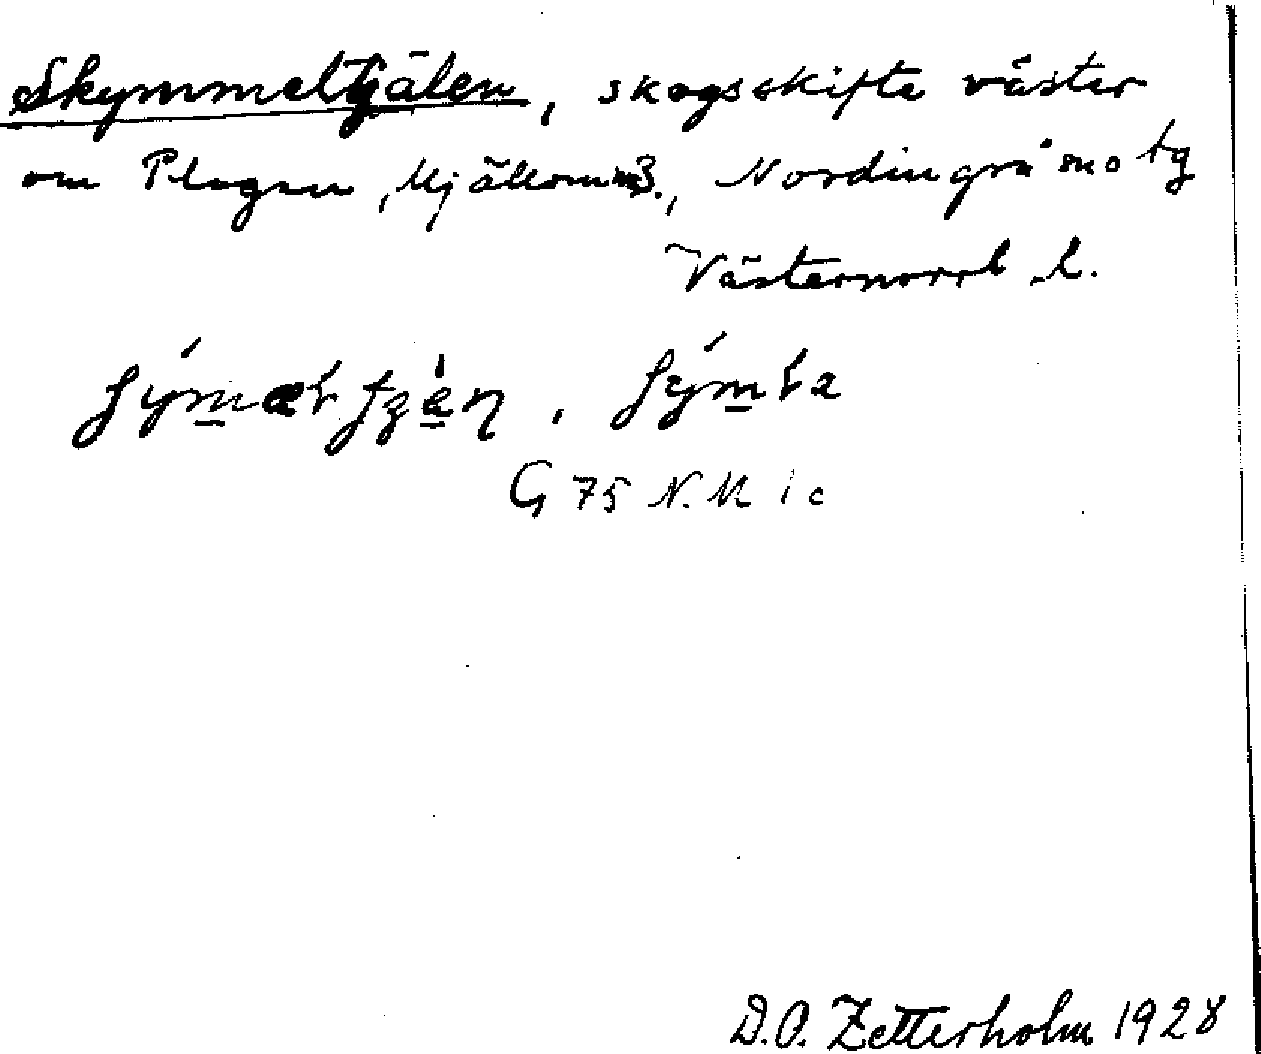 Skymmeltjälen, skogsskifte väster
om Plogen, Mjällom 3., Nordingrå sn
Västernorrl. l.
G 75 N.M 1 c
D.O. Zetterholm 1928